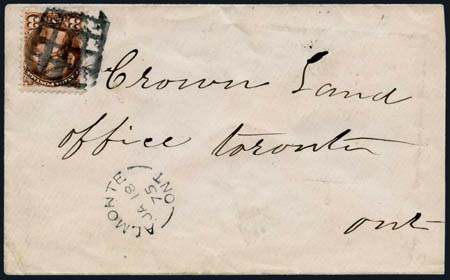 Crown Land
office toronto
ont
ALMONTE
JA 18
75
ONT